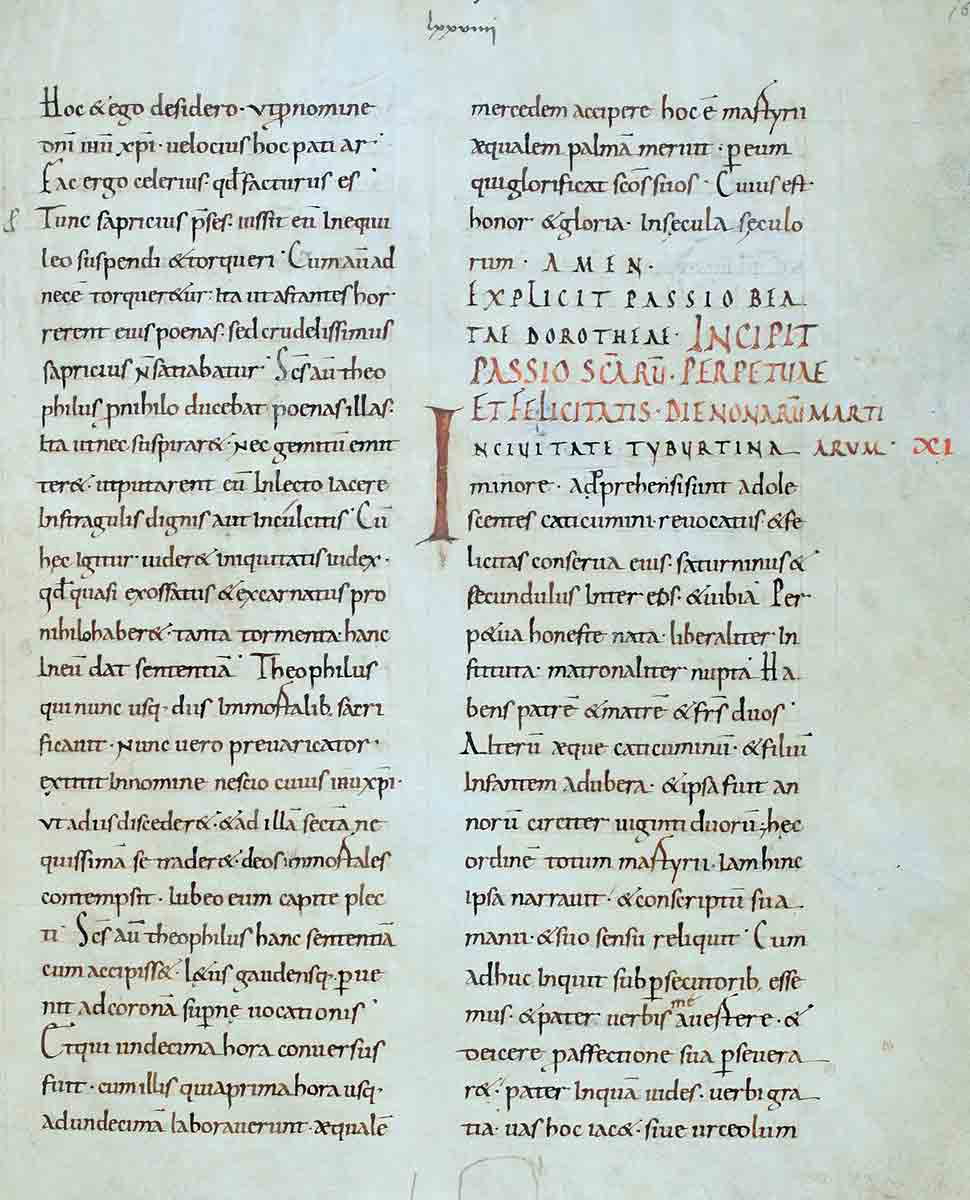 lxxviiii
Hoc & ego desidero · ut ꝑ nomine
dn̄i ihū xp̄i · uelocius hoc patiar ·
Fac ergo celerius · qd̄ facturus es ·
Tunc sapricius p̄ses · iussit eū In equi
leo suspendi & torqueri · Cum aū ad
necē torquer&ur : Ita ut astantes hor
rerent eius poenas · sed crudelissimus
sapricius n̄ satiabatur · Sc̄s aū theo
philus p nihilo ducebat poenas illas ·
Ita ut nec suspirar& · Nec gemitū emit
ter& · ut putarent eū In lecto Iacere
In stragulis dignis aut In culcitis · Cū
hec Igitur uider& iniquitatis iudex ·
qd̄ quasi exossatus & excarnatus pro
nihilo haber& · tanta tormenta · hanc
In eū dat sententiā · Theophilus
qui nunc usq · diis Immortalib, sacri
ficauit · Nunc uero preuaricator ·
extitit In nomine nescio cuius ihū xp̄i ·
ut a diis disceder& · & ad illā sectā ne
quissimā se trader& · deos immortales
contempsit · Iubeo eum capite plec
ti · Sc̄s aū theophilus hanc sententiā
cum accipiss& · l&us gaudensq · ꝑue
nit ad coronā suꝑnę uocationis ·
Et qui undecima hora conuersus
fuit · cum illis qui a prima hora usq ·
ad undecimā laborauerunt · æqualē
mercedem accipere hoc ē martyrii
æqualem palmā meruit · ꝑ eum
qui glorificat sc̄os suos · Cuius est ·
honor & gloria · In secula seculo
rum · AMEN ·
EXPLICIT PASSIO BEA
TAE DOROTHEAE · INCIPIT
PASSIO SC̄ARŪ · PERPETUAE
ET FELICITATIS · DIE NONARŪ MARTI
ARUM · XI
IN CIUITATE TYBURTINA
minore · Adp̄rehensi sunt adole
scentes caticumini · reuocatus & fe
licitas conserua eius · saturninus &
secundulus Inter eos · & iubia Per
p&ua honeste nata · liberaliter In
stituta · matronaliter nupta · Ha
bens patrē & matrē & frs̄ duos ·
Alterū æque caticuminū · & filiū
Infantem ad ubera · & ipsa fuit an
norū circiter uiginti duorū ; hec
ordinē totum martyrii · Iam hinc
ipsa narrauit · & conscriptū sua
manu · & suo sensu reliquit · Cum
adhuc Inquit sub ꝑsecutorib, esse
mus · & pater uerbis me auertere · &
deicere ꝑ affectione sua ꝑseuera
r& · pater Inquā uides · uerbi gra
tia · uas hoc iac& · siue urceolum